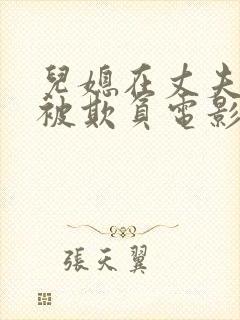 兒媳在丈夫
被欺負電影
張天翼